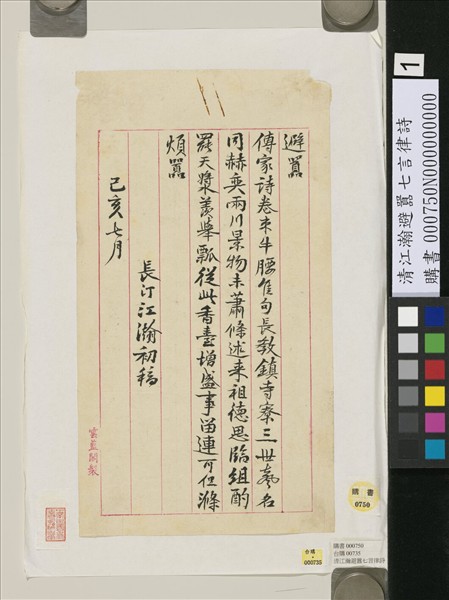 避囂
傳家詩卷束牛腰佳句長教鎮寺寮三世藝名
同赫奕兩川景物未蕭條述来祖德思臨組酌
罷天漿羡舉瓢從此香臺增盛事留連可但滌
煩囂
長汀江瀚初稿
己亥七月
雲藍閣製
1
清江瀚避囂七言律詩
購書 000750N000000000
購書
0750
台購
000735
購書 000750
台購 00735
清江瀚避囂七言律詩